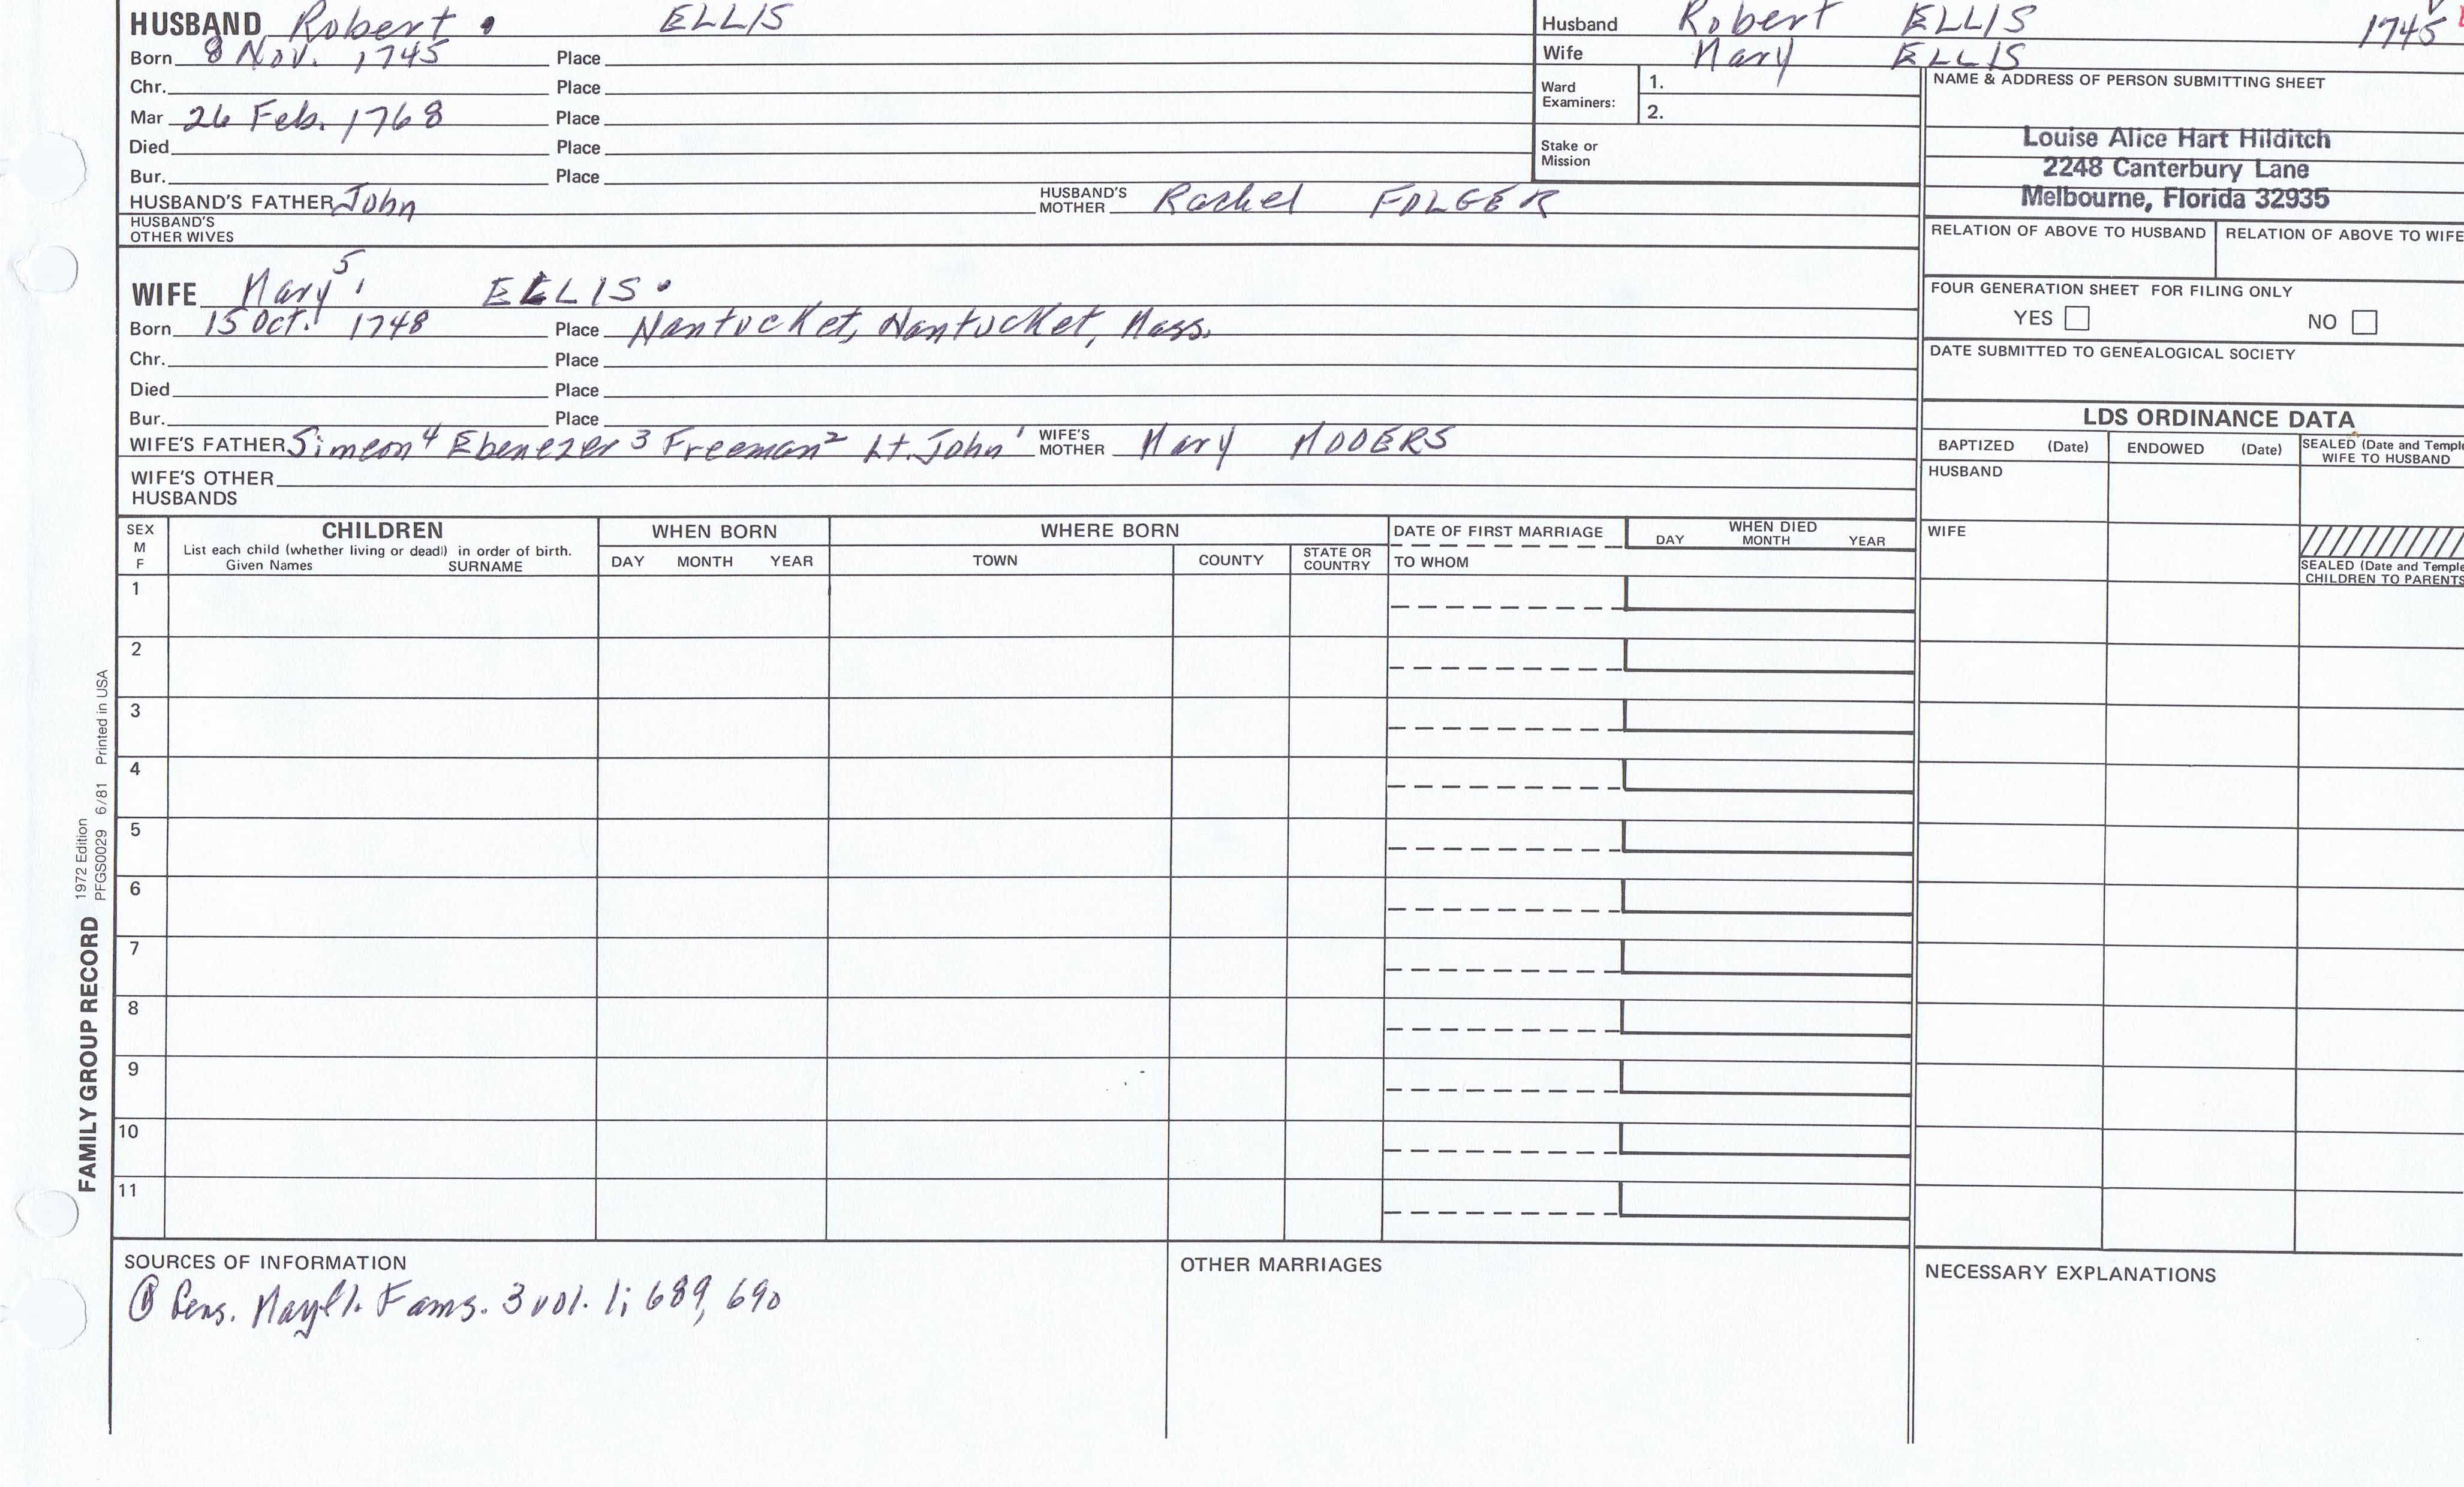 HUSBAND Robert ELLIS
Born 8 Nov. 1745 Place
Chr. Place
Mar 26 Feb. 1768 Place
Died Place
Bur. Place
HUSBAND'S FATHER John HUSBAND'S MOTHER Rachel FOLGER
HUSBAND'S OTHER WIVES
Husband Robert ELLIS 1745
Wife Mary ELLIS
Ward Examiners: 1.
2.
Stake or Mission
NAME & ADDRESS OF PERSON SUBMITTING SHEET
Louise Alice Hart Hilditch
2248 Canterbury Lane
Melbourne, Florida 32935
RELATION OF ABOVE TO HUSBAND RELATION OF ABOVE TO WIFE
WIFE Mary 5 ELLIS
Born 15 Oct. 1748 Place Nantucket, Nantucket, Mass.
Chr. Place
Died Place
Bur. Place
WIFE'S FATHER Simeon 4 Ebenezer 3 Freeman 2 Lt. John 1 WIFE'S MOTHER Mary
WIFE'S OTHER HUSBANDS
FOUR GENERATION SHEET FOR FILING ONLY
YES NO
DATE SUBMITTED TO GENEALOGICAL SOCIETY
LDS ORDINANCE DATA
BAPTIZED (Date) ENDOWED (Date) SEALED (Date and Temple
WIFE TO HUSBAND
HUSBAND
WIFE
SEALED (Date and Temple
CHILDREN TO PARENTS
SEX M F CHILDREN WHEN BORN WHERE BORN DATE OF FIRST MARRIAGE WHEN DIED
List each child (whether living or dead) in order of birth.
Given Names SURNAME DAY MONTH YEAR TOWN COUNTY STATE OR COUNTRY TO WHOM DAY MONTH YEAR
1
2
3
4
5
6
7
8
9
10
11
FAMILY GROUP RECORD
1972 Edition
PFGS0029 6/81 Printed in USA
SOURCES OF INFORMATION
Gens. Mayfl. Fams. 3 vol. 1; 689, 690
OTHER MARRIAGES
NECESSARY EXPLANATIONS